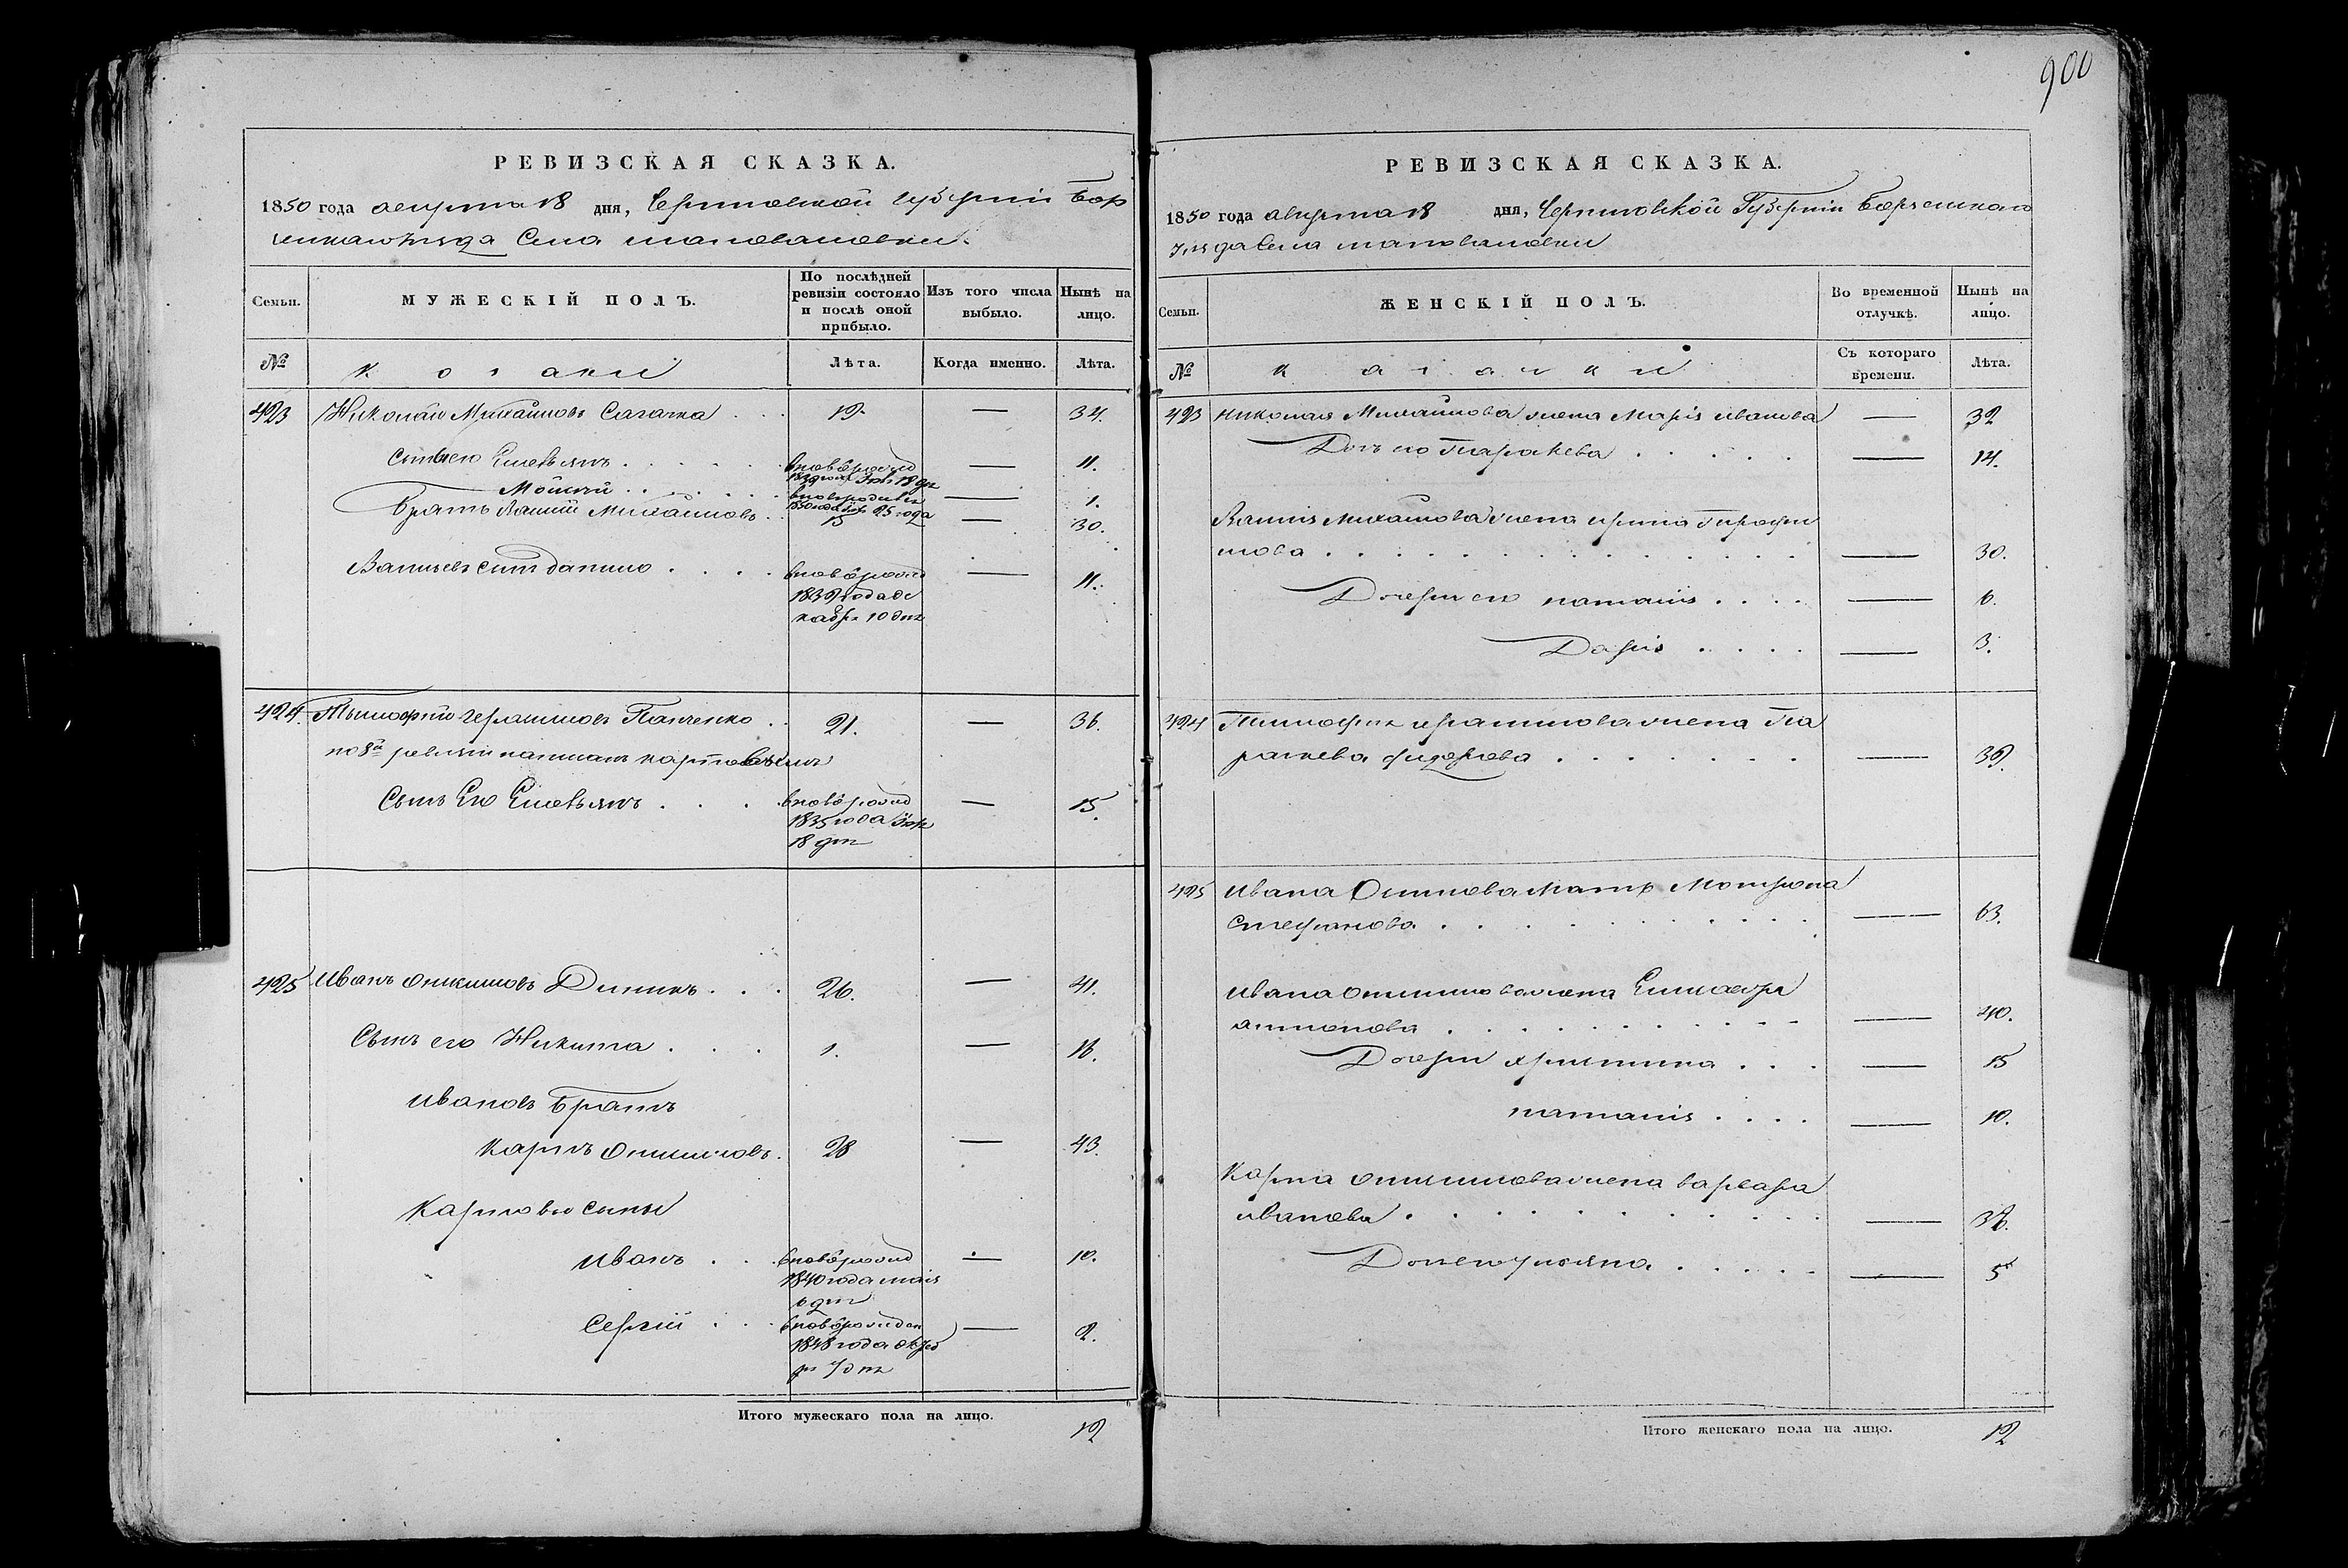 900
РЕВИЗСКАЯ СКАЗКА.
1850 года августа 18 дня, Черниговской Губернiи Бор
зенскаго уезда Села шаповаловки.
Семьи.
МУЖЕСКIЙ ПОЛЪ.
По послѣдней ревизiи состояло и послѣ оной прибыло.
Изъ того числа выбыло.
Нынѣ на лицо.
№
козаки
Лѣта.
Когда именно.
Лѣта.
423 Николай Михайловъ Сагачка . . . 19 — 34.
Сынъ его Емельянъ . . . вновь рожд — 11.
Мойсей . . . — 1.
Братъ Михайловъ . . 15 — 30.
сынъ данило . . . . вновь рожд — 11.
1839 года де
кабря 10 дня
424. Тимофей герасимовъ Панченко . . 21. — 36.
по 8й ревизiи написанъ
Сынъ Его Емельянъ . . . . вновь рожд — 15.
1835 года
18 дня
425 Иванъ Онисимовъ . . . 26. — 41.
Сынъ его Никита . . . 1. — 16.
Ивановъ братъ
Карпъ Онисимовъ . 28 — 43.
Карповы сыны
Иванъ . . . вновь рожд — 10.
1840 года маiя
6 дня
Сергiй . . . вновь рожден — 2.
1848 года октяб
ря 7 дня
Итого мужескаго пола на лицо. 12
РЕВИЗСКАЯ СКАЗКА.
1850 года августа 18 дня, Черниговской Губернiи Борзенскаго
уезда Села шаповаловки
Семьи.
ЖЕНСКIЙ ПОЛЪ.
Во временной отлучкѣ.
Нынѣ на лицо.
№
козачки
Съ котораго времени.
Лѣта.
423 николая Михайлова жена Марiя иванова — 32
Дочь его Параскева . . . . . — 14.
Михайлова жена ирина Трофи
мова . . . . . — 30.
Дочери его наталiя . . . . — 6.
Дарiя . . . . — 3.
424 Тимофея герасимова жена Па
раскева фидорова . . . . . — 39.
425 Ивана Онисимова Мать Мотрона
Стефанова . . . . . — 63.
Ивана Онисимова жена
антонова . . . . . — 40.
Дочери христина . . . — 15
наталiя . . . . — 10.
Карпа Онисимова жена варвара
иванова . . . . . — 36.
Дочь его улiяна . . . . . — 5
Итого женскаго пола на лицо. 12